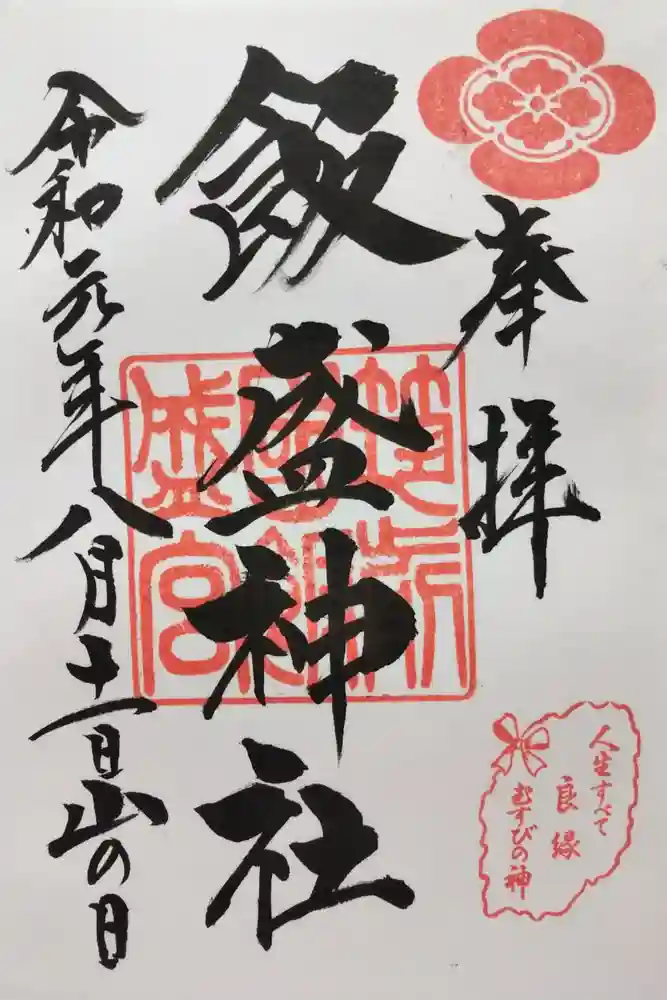 奉拝
人生すべて
良縁
むすびの神
飯盛神社
筑前
國飯
盛宮
令和元年八月十一日山の日